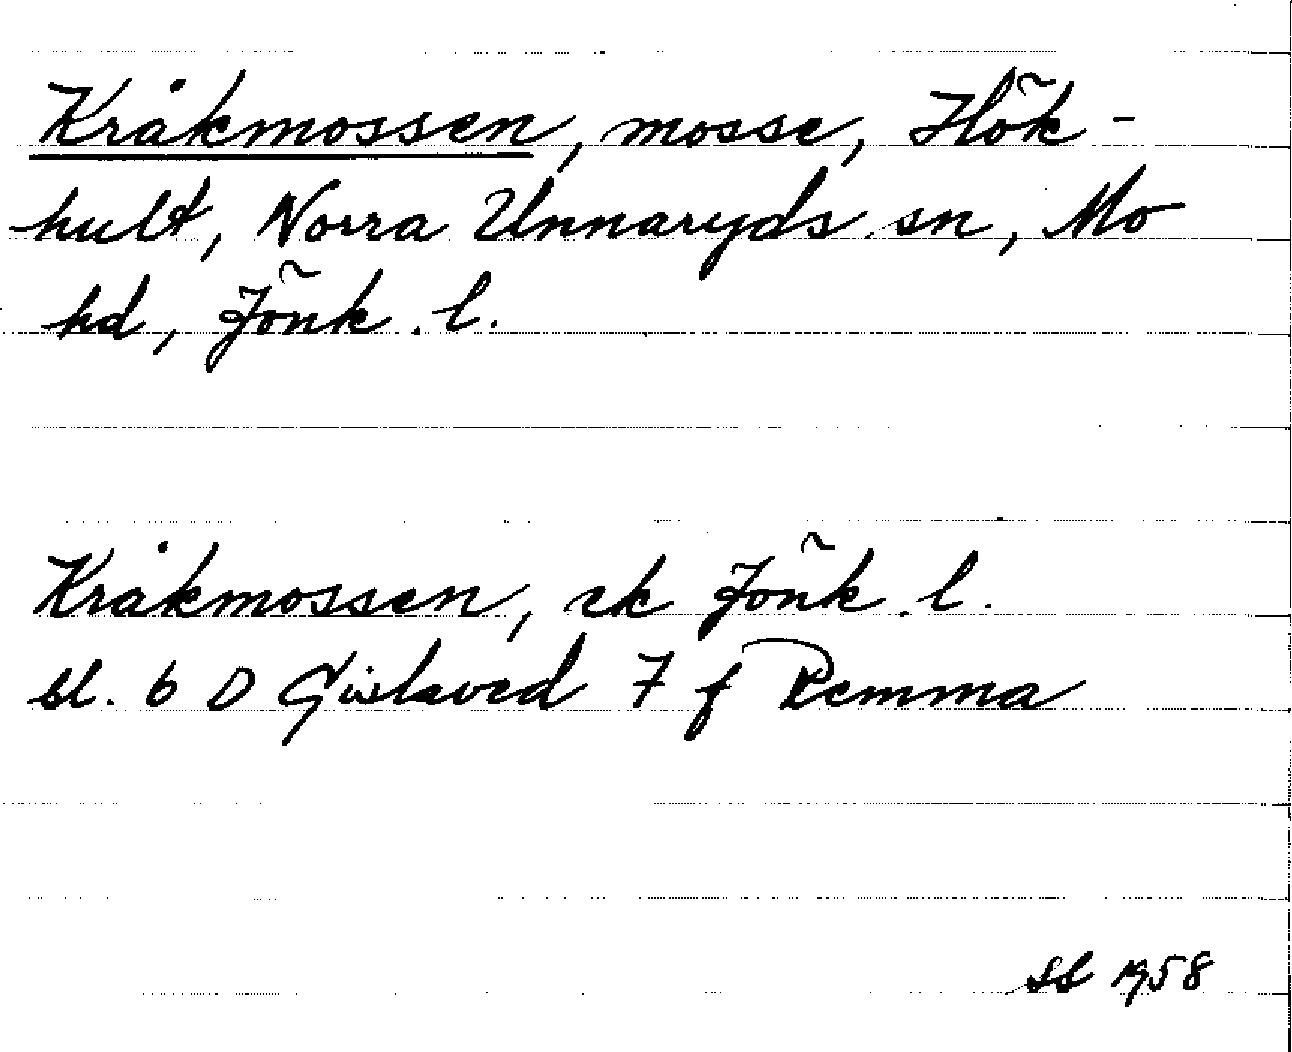 Kråkmossen, mosse, Hök-
hult, Norra Unnaryds sn, Mo
hd, Jönk. l.
Kråkmossen, ek Jönk. l.
bl. 6 D Gislaved 7 f Remma
SL 1958